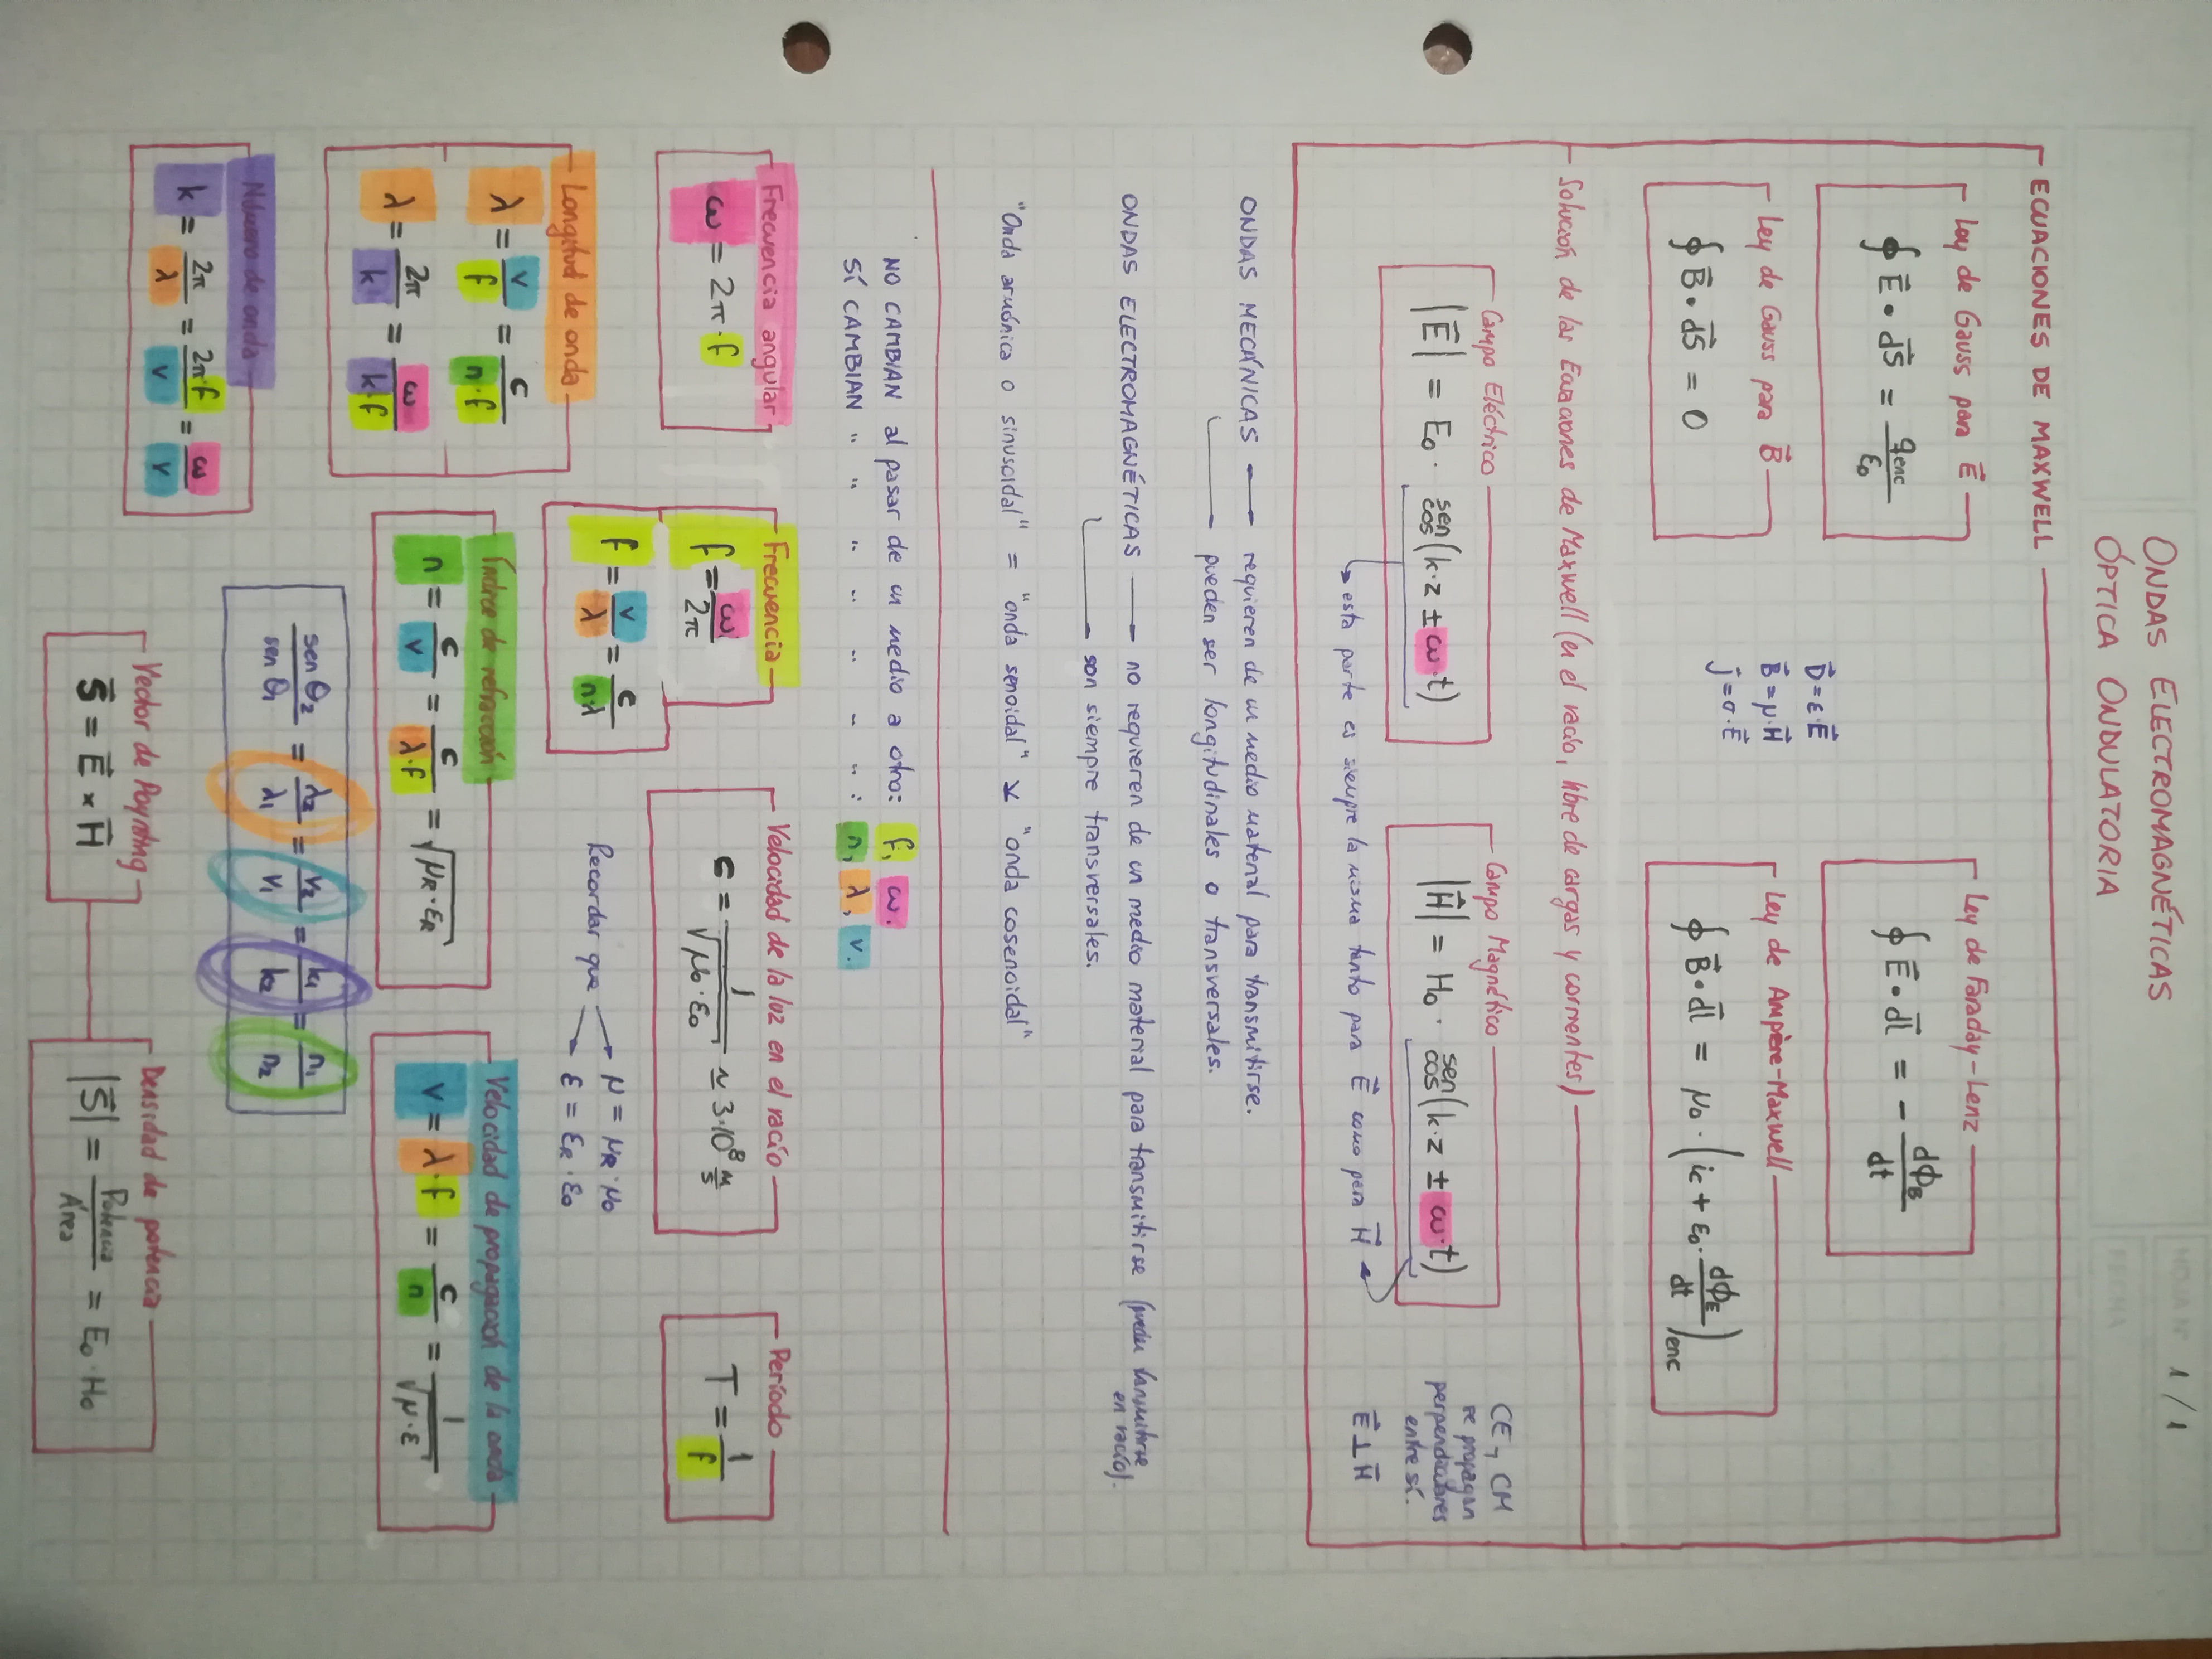 HOJA Nº 1/1
FECHA
ONDAS ELECTROMAGNÉTICAS
ÓPTICA ONDULATORIA
ECUACIONES DE MAXWELL
Ley de Gauss para E⃗
∮ E⃗ • dS⃗ = qenc/ε₀
Ley de Faraday-Lenz
∮ E⃗ • dl⃗ = - dϕB/dt
D⃗ = ε·E⃗
B⃗ = μ·H⃗
j⃗ = σ·E⃗
Ley de Gauss para B⃗
∮ B⃗ • dS⃗ = 0
Ley de Ampère-Maxwell
∮ B⃗ • dl⃗ = μ₀ · (ic + ε₀ · dϕE/dt)enc
Solución de las Ecuaciones de Maxwell (en el vacío, libre de cargas y corrientes)
Campo Eléctrico
|E⃗| = E₀ · sen cos (k·z ± ω·t)
Campo Magnético
|H⃗| = H₀ · sen cos (k·z ± ω·t)
CE y CM
se propagan
perpendiculares
entre sí.
E⃗ ⊥ H⃗
esta parte es siempre la misma tanto para E⃗ como para H⃗
ONDAS MECÁNICAS — requieren de un medio material para transmitirse.
— pueden ser longitudinales o transversales.
ONDAS ELECTROMAGNÉTICAS — no requieren de un medio material para transmitirse (pueden transmitirse
en vacío).
— son siempre transversales.
"Onda armónica o sinusoidal" = "onda senoidal" y "onda cosenoidal"
NO CAMBIAN al pasar de un medio a otro: f, ω.
SÍ CAMBIAN " " " " " " " : n, λ, v.
Frecuencia angular
ω = 2π·f
Frecuencia
f = ω/2π
f = v/λ = c/n·λ
Velocidad de la luz en el vacío
c = 1/√μ₀·ε₀ ≃ 3·10⁸ m/s
Período
T = 1/f
Recordar que → μ = μR·μ₀
→ ε = εR·ε₀
Longitud de onda
λ = v/f = c/n·f
λ = 2π/k = ω/k·f
Índice de refracción
n = c/v = c/λ·f = √μR·εR
Velocidad de propagación de la onda
v = λ·f = c/n = 1/√μ·ε
sen θ₂/sen θ₁ = λ₂/λ₁ = v₂/v₁ = k₁/k₂ = n₁/n₂
Número de onda
k = 2π/λ = 2π·f/v = ω/v
Vector de Poynting
S⃗ = E⃗ × H⃗
Densidad de potencia
|S⃗| = Potencia/Área = E₀·H₀